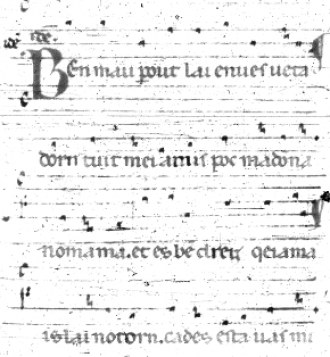 idē idē.
Ben mau pout lai enuers ueta
dorn tuit mei amis poc madona
nomama. et es be dreiz qeiama
is lai notorn. cades esta uas mi